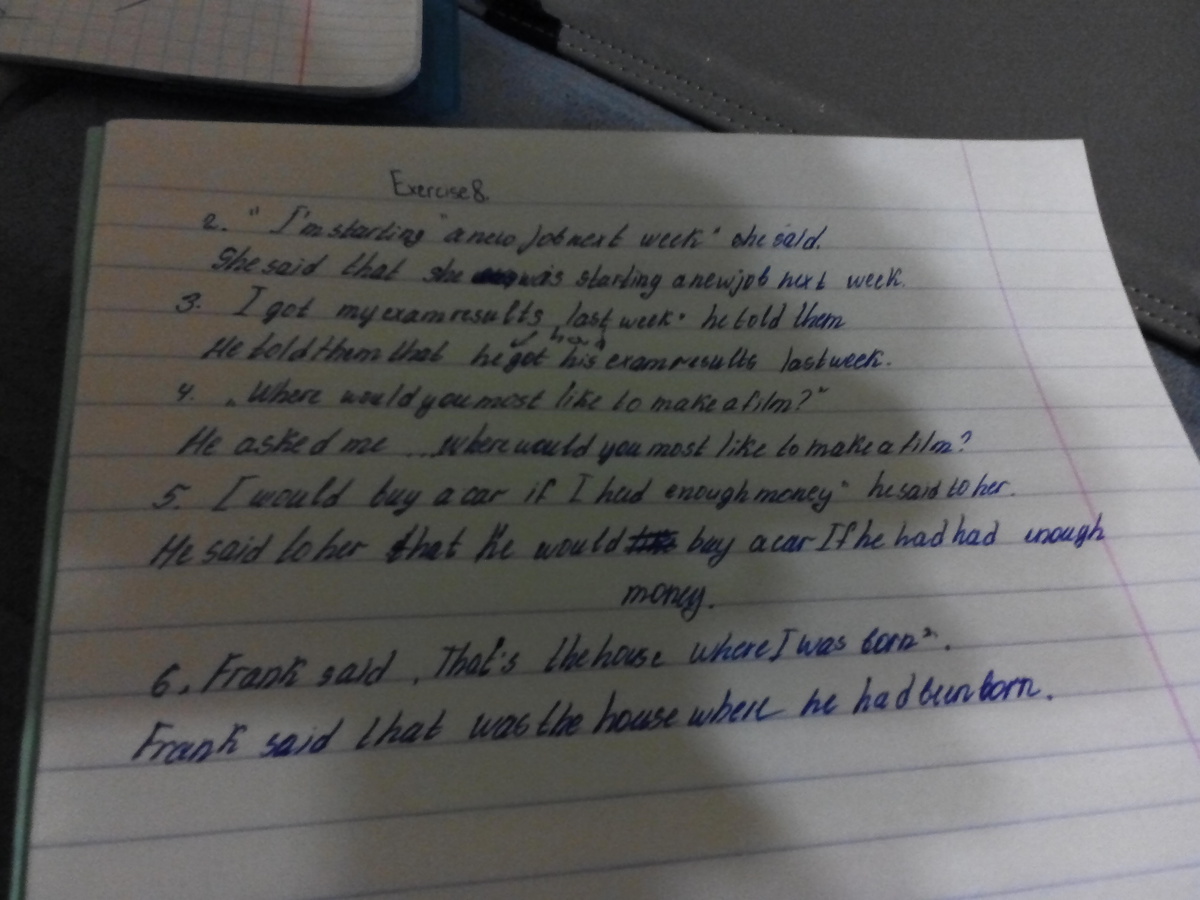 Exercise 8.
2. "I'm starting "a new job next week" she said.
She said that she was starting a new job next week.
3. I got my exam results last week" he told them
had
He told them that he got his exam results last week.
4. „Where would you most like to make a film?"
He asked me ...where would you most like to make a film?
5. I would buy a car if I had enough money" he said to her.
He said to her that he would buy a car If he had had enough
money.
6. Frank said, That's the house where I was born".
Frank said that was the house where he had been born.